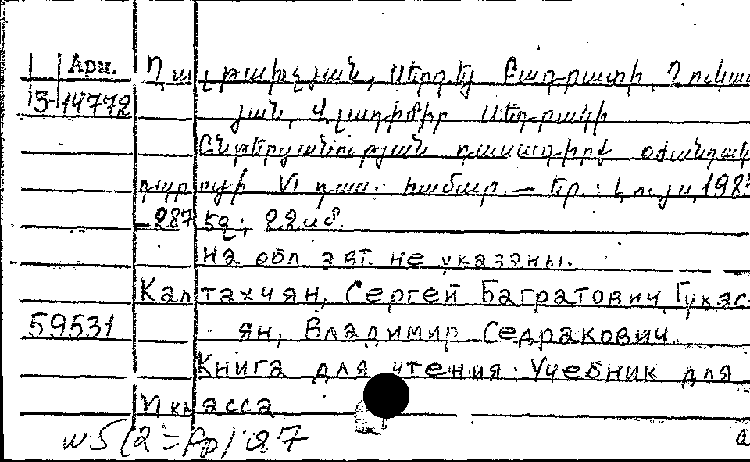 Арм. Ղալթախչյան, Սերգեյ Բագրատի, Ղուկաս
З-14772
յան, Վլադիմիր Սեդրակի
Ընթերցանության դասագիրք օժանդակ
դպրոցի VI դաս. համար. — Եր.: Լույս, 198
— 287 էջ; 22 սմ.
На обл. авт. не указаны.
Калтахчян, Сергей Багратович, Гукас
59531 ян, Владимир Седракович.
Книга для чтения: Учебник для
VI класса